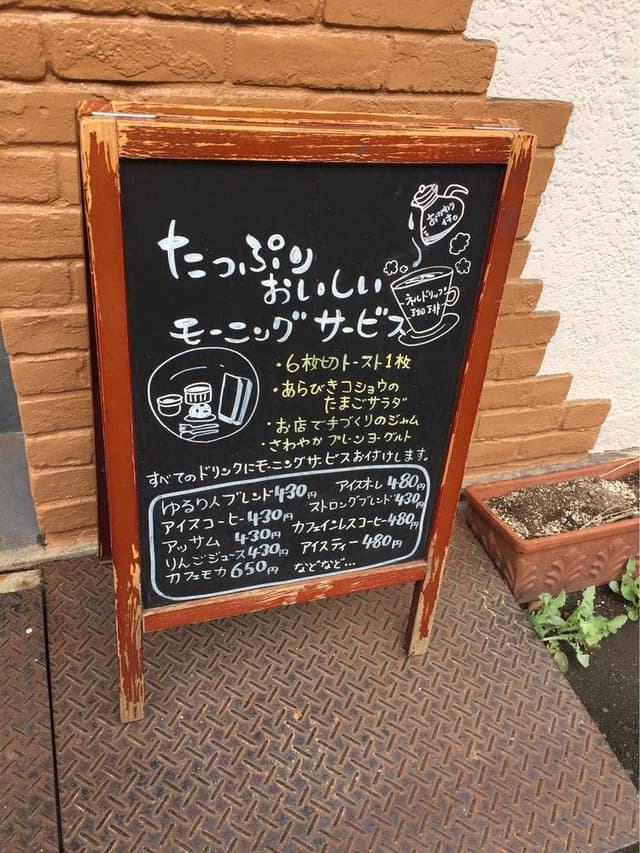 おかわり
付。
ネルドリップ
珈琲
たっぷり
おいしい
モーニングサービス
・6枚切トースト1枚
・あらびきコショウの
たまごサラダ
・お店で手づくりのジャム
・さわやかプレーンヨーグルト
すべてのドリンクにモーニングサービスお付けします。
ゆるり人ブレンド430円
アイスコーヒー430円
アッサム 430円
りんごジュース430円
カフェモカ650円
アイスオレ480円
ストロングブレンド430円
カフェインレスコーヒー480円
アイスティー480円
などなど…